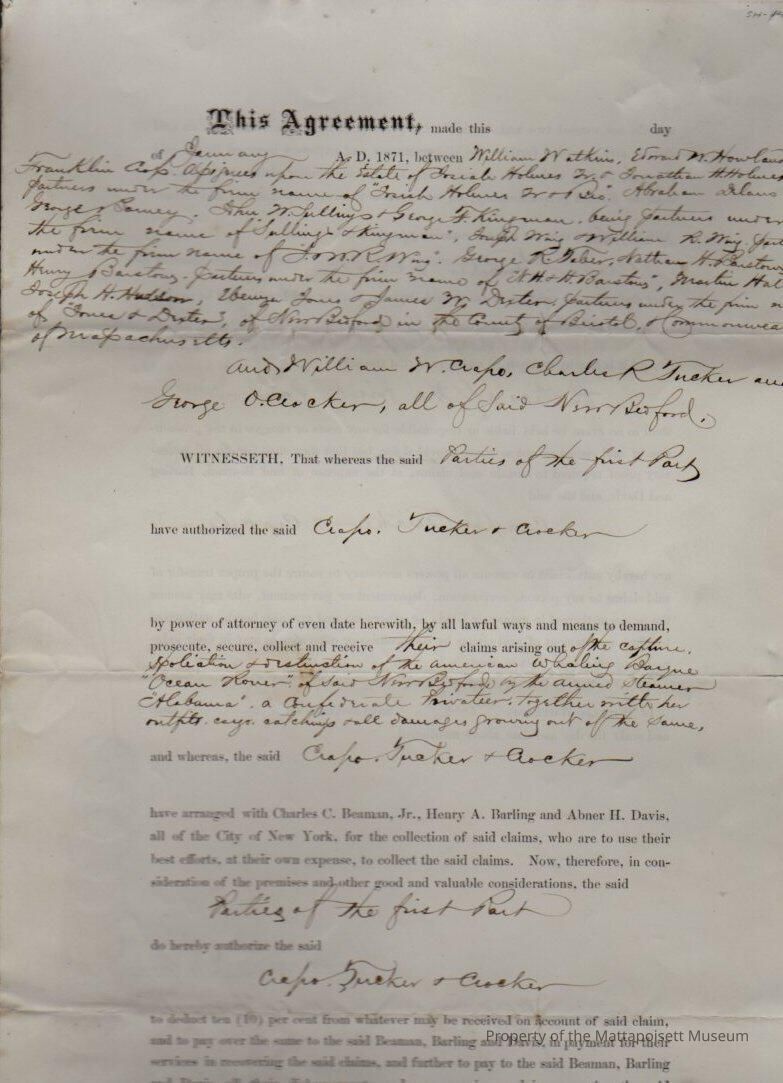 This Agreement, made this day
of January A. D. 1871, between William Watkins, Edward W. Howland
Franklin Crapo, Assignees upon the Estate of Josiah Holmes Jr. & Jonathan H Holmes
partners under the firm name of "Josiah Holmes Jr & Bro" Abraham Delano
George Barney, John W. Sullings & George F Kingman, being partners under
the firm name of "Sullings & Kingman", Joseph Wing & William R. Wing, part
under the firm name of J & W. R Wing. George R Taber, Nathan H. Barstow
Henry Barstow, partners under the firm name of "N. H & H. Barstow", Martin
Joseph H. Ebenezer Jones & James W. Dexter, partners under the firm
of Jones & Dexter, of New Bedford in the County of Bristol, & Commonwea
of Massachusetts.
And William W. Crapo, Charles R Tucker an
George O. Crocker, all of Said New Bedford.
WITNESSETH, That whereas the said Parties of the first Part
have authorized the said Crapo, Tucker & Crocker
by power of attorney of even date herewith, by all lawful ways and means to demand,
prosecute, secure, collect and receive their claims arising out of the capture,
spoliation & distruction of the american whaling Barque
"Ocean Rover" of said New Bedford by the armed steamer
"Alabama", a Confederate Privateer, together with her
outfits, cargo, catchings & all damages growing out of the same,
and whereas, the said Crapo, Tucker & Crocker
have arranged with Charles C. Beaman, Jr., Henry A. Barling and Abner H. Davis,
all of the City of New York, for the collection of said claims, who are to use their
best efforts, at their own expense, to collect the said claims. Now, therefore, in con-
sideration of the premises and other good and valuable considerations, the said
Parties of the first Part
do hereby authorize the said
Crapo, Tucker & Crocker
to deduct ten (10) per cent from whatever may be received on account of said claim,
and to pay over the same to the said Beaman, Barling and Davis, in payment for their
services in recovering the said claims, and further to pay to the said Beaman, Barling
Property of the Mattapoisett Museum